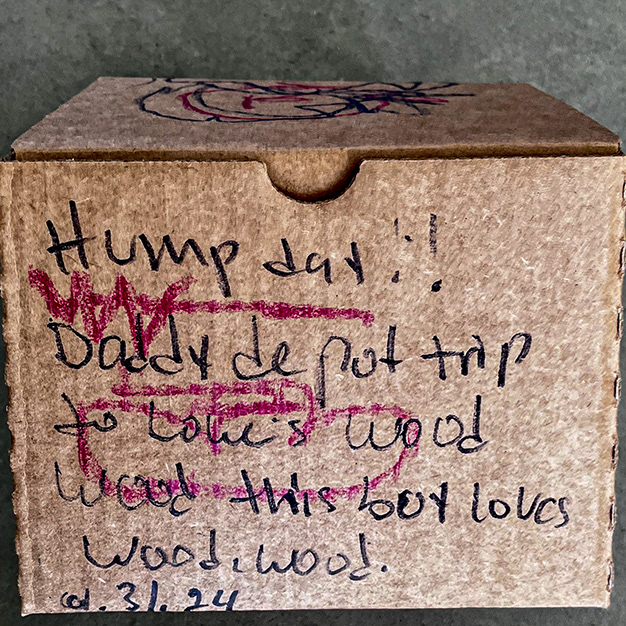 Hump day!!
Daddy depot trip
to Lowe's wood
wood this boy loves
wood, wood.
31. 24